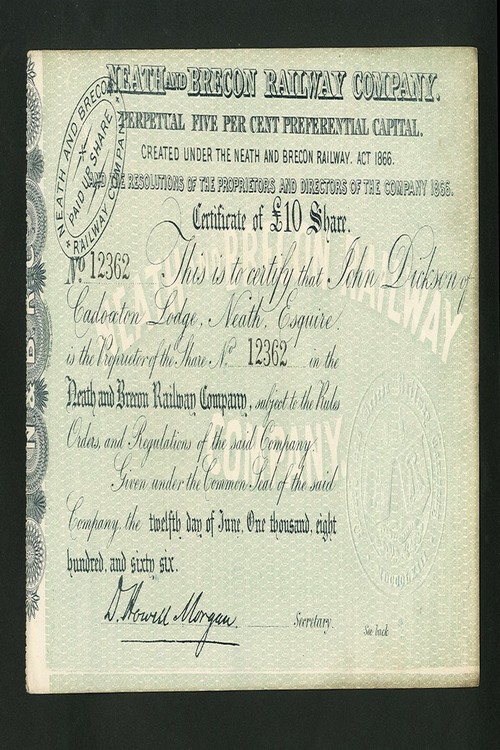 NEATH AND BRECON RAILWAY COMPANY.
PERPETUAL FIVE PER CENT PREFERENTIAL CAPITAL.
CREATED UNDER THE NEATH AND BRECON RAILWAY. ACT 1866.
AND THE RESOLUTIONS OF THE PROPRIETORS AND DIRECTORS OF THE COMPANY 1866.
NEATH AND BRECON
PAID UP SHARE
RAILWAY COMPANY
Certificate of £10 Share.
No 12362 This is to certify that John Dickson of
Cadoxton Lodge, Neath, Esquire.
is the Proprietor of the Share, No 12362 in the
Neath and Brecon Railway Company, subject to the Rules
Orders, and Regulations of the said Company.
Given under the Common Seal of the said
Company, the twelfth day of June, One thousand, eight
hundred, and sixty six.
D. Howell Morgan. Secretary.
See back
NEATH AND BRECON RAILWAY
COMPANY